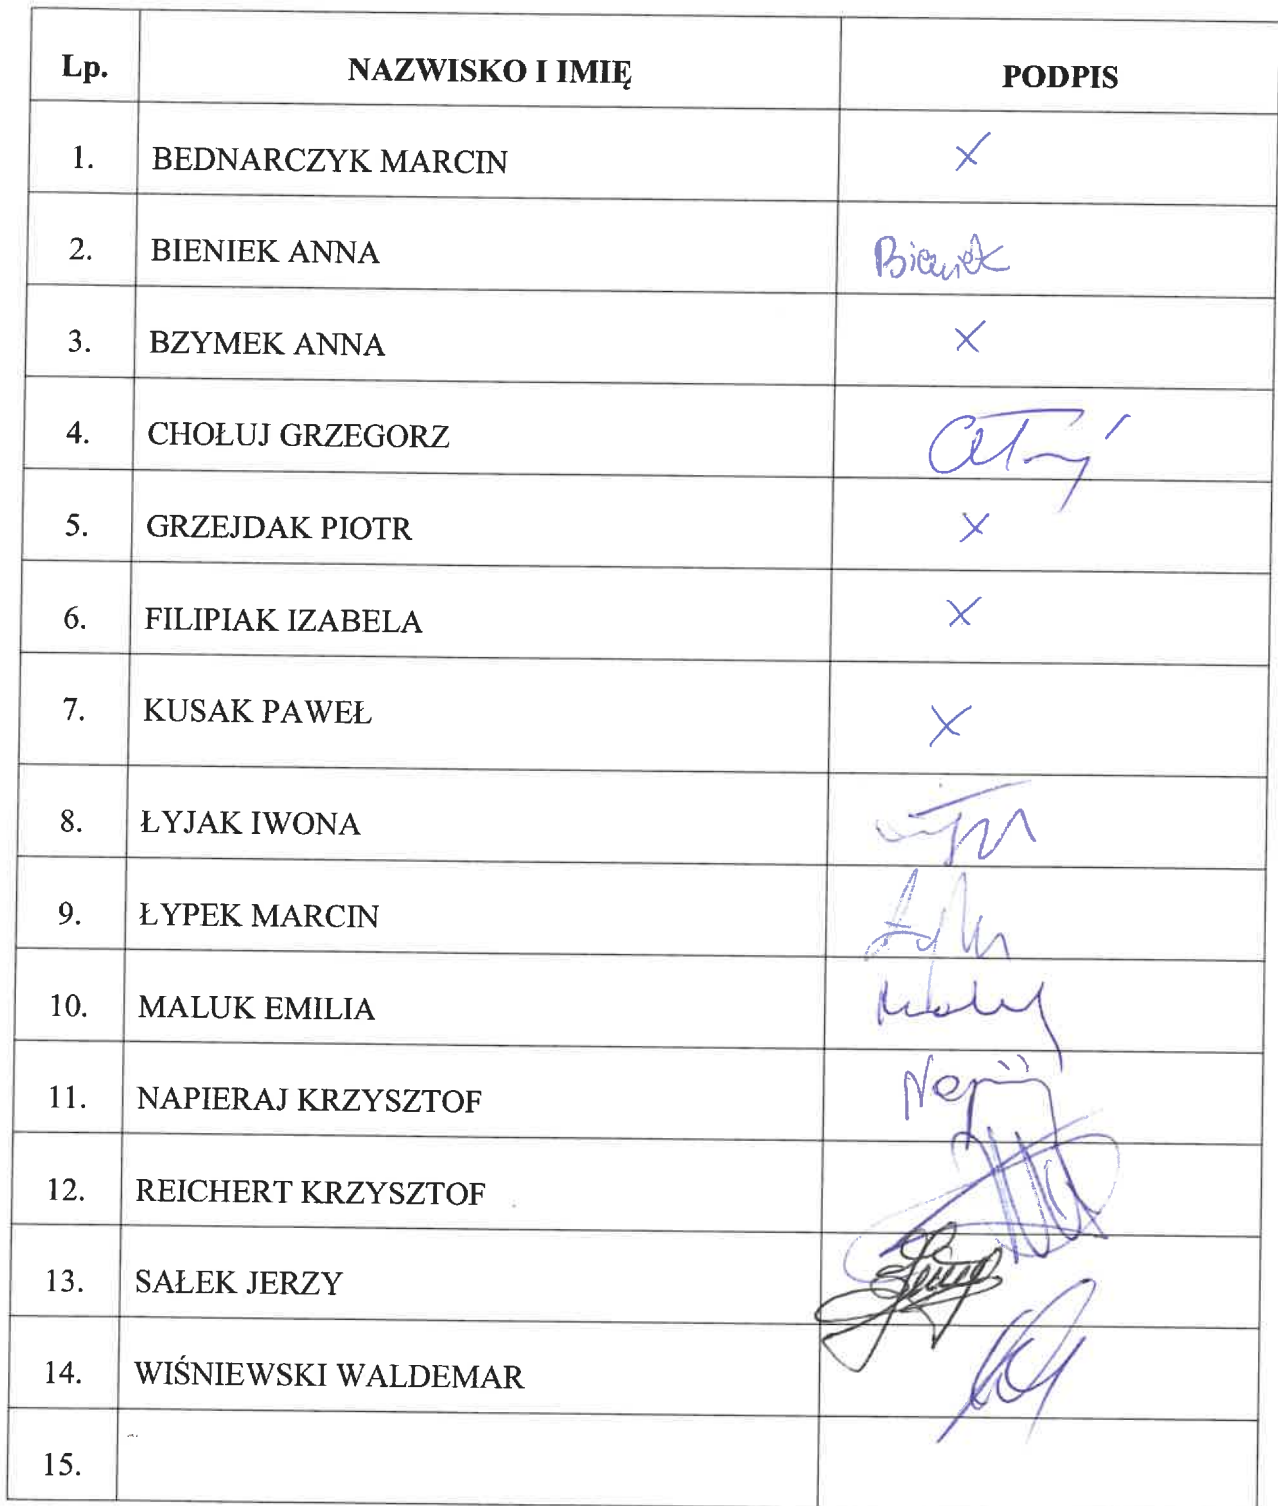 Lp. NAZWISKO I IMIĘ PODPIS
1. BEDNARCZYK MARCIN X
2. BIENIEK ANNA Bieniek
3. BZYMEK ANNA X
4. CHOŁUJ GRZEGORZ
5. GRZEJDAK PIOTR X
6. FILIPIAK IZABELA X
7. KUSAK PAWEŁ X
8. ŁYJAK IWONA
9. ŁYPEK MARCIN
10. MALUK EMILIA
11. NAPIERAJ KRZYSZTOF
12. REICHERT KRZYSZTOF
13. SAŁEK JERZY
14. WIŚNIEWSKI WALDEMAR
15.